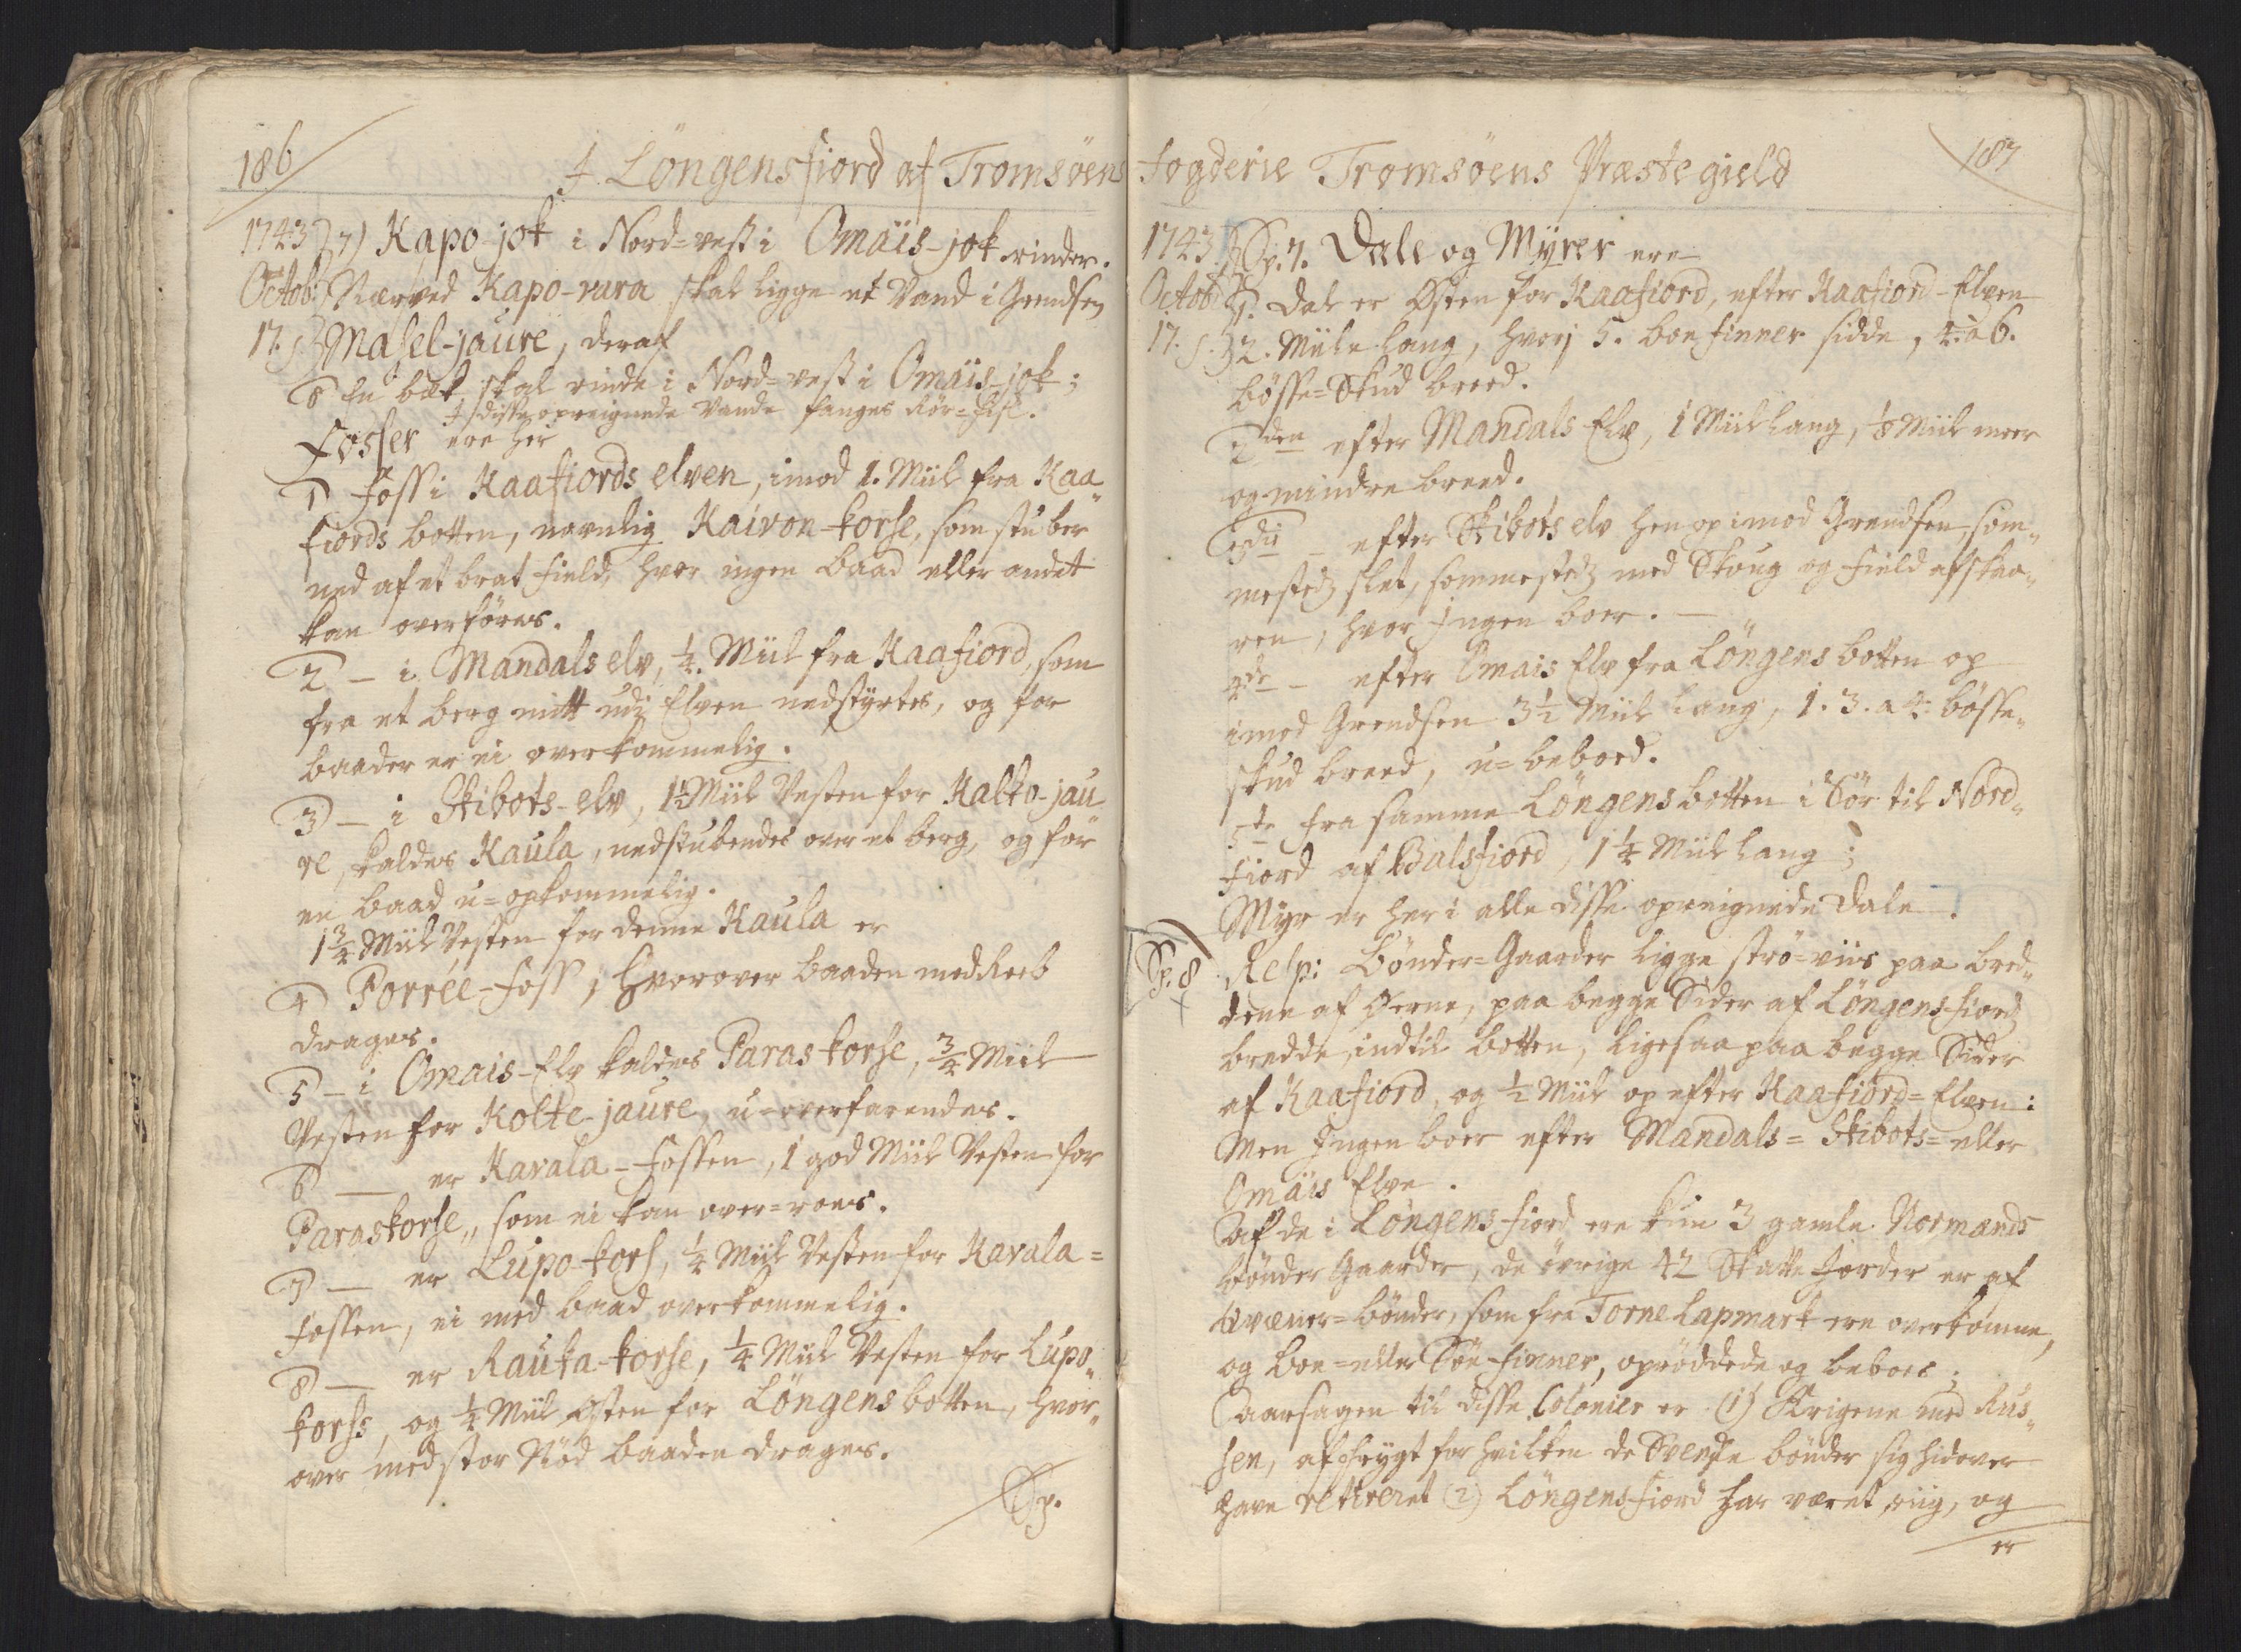 186
J. Löngensfiord af Tromsöens
1743 7) Kapo-jok i Nord-vest i Omäis-jok rinder.
Octob: Nærved Kapo-vara skal ligge et Vand i Grendsen
17. s. Masel-jaure, deraf
8 En bæk skal rinde i Nord-vest i Omäis-jok;
I disse opreignede Vande fanges Rör-fisk.
Fosser ere her
1 Foss i Kaafiords elven, imod 1. Miil fra Kaa-
fiords botten, navnlig Kaivon-korse, som stuber
ned af et brat field, hvor ingen baad eller andet
kan overföres.
2 – i Mandals elv, 1/4. Miil fra Kaafiord, som
fra et berg mitt udi Elven nedstyrtes, og for
baader er ei overkommelig.
3 – i Skibots-elv, 1 1/2 Miil Vesten for Kalko-jau
re, kaldes Kaula, nedstubendes over et berg, og for
en baad u-opkommelig.
1 3/4 Miil Vesten for denne Kaula er
4 Porrée-foss; hvorover baaden med Reeb
drages.
5 – i Omais-Elv kaldes Paraskorse, 3/4 Miil
Vesten for Kolte-jaure, u-overfarendes.
6 — er Kavala-Fossen, 1 god Miil Vesten for
Paraskorse, som ei kan over-roes.
7 — er Lupo-kors, 1/4 Miil Vesten for Kavala-
Fossen, ei med baad overkommelig.
8 — er Rauka-korse, 1/4 Miil Vesten for Lupo-
korse, og 1/4 Miil Östen for Löngens botten, hvor-
over med stor Nöd baaden drages.
Sp.
Fogderie Tromsöens Præstegield
187
1743. Sp. 7. Dale og Myrer ere
Octob: 1. Dal er Östen for Kaafiord, efter Kaafiord-Elven
17. s. 2. Miile lang, hvori 5. boe finner sidde, 4. à 6.
bösse-Skud breed.
2den efter Mandals Elv, 1 Miil lang, 1/8 Miil meer
og mindre breed.
3die – efter Skibots elv hen op imod Grendsen, som-
mested slet, sommested med Skoug og Field afskaa-
ren, hvor Ingen boer. –
4de – efter Omais Elv fra Löngens botten op
imod Grendsen 3 1/2 Miil lang, 1. 3. a 4. bösse-
skud breed, u-beboed.
5te fra samme Löngens botten i Sör til Nord-
fiord af Balsfiord, 1 1/4 Miil lang;
Myr er her i alle disse opreignede Dale.
Sp. 8 Resp: Bönder-Gaarder ligge strö-viis paa bred-
dene af Öerne, paa begge Sider af Löngens-fiord
bredde, indtil botten, ligesaa paa begge Sider
af Kaafiord, og 1/2 Miil op efter Kaafiord-Elven:
Men Ingen boer efter Mandals- Skibots- eller
Omäis Elve.
Af de i Löngens-fiord ere kun 3 gamle Normænds
bönder Gaarder, de övrige 42 Skatte Jorder er af
Qvæner-bönder, som fra Torne Lapmark ere overkomne,
og boe- eller Söe-finner, opröddede og beboes;
Aarsagen til disse Colonier er (1) Krigene med Rus-
sen, af frygt for hvilken de Svenske bönder sig hidover
have retireret (2) Löngens-fiord har været riig, og
er